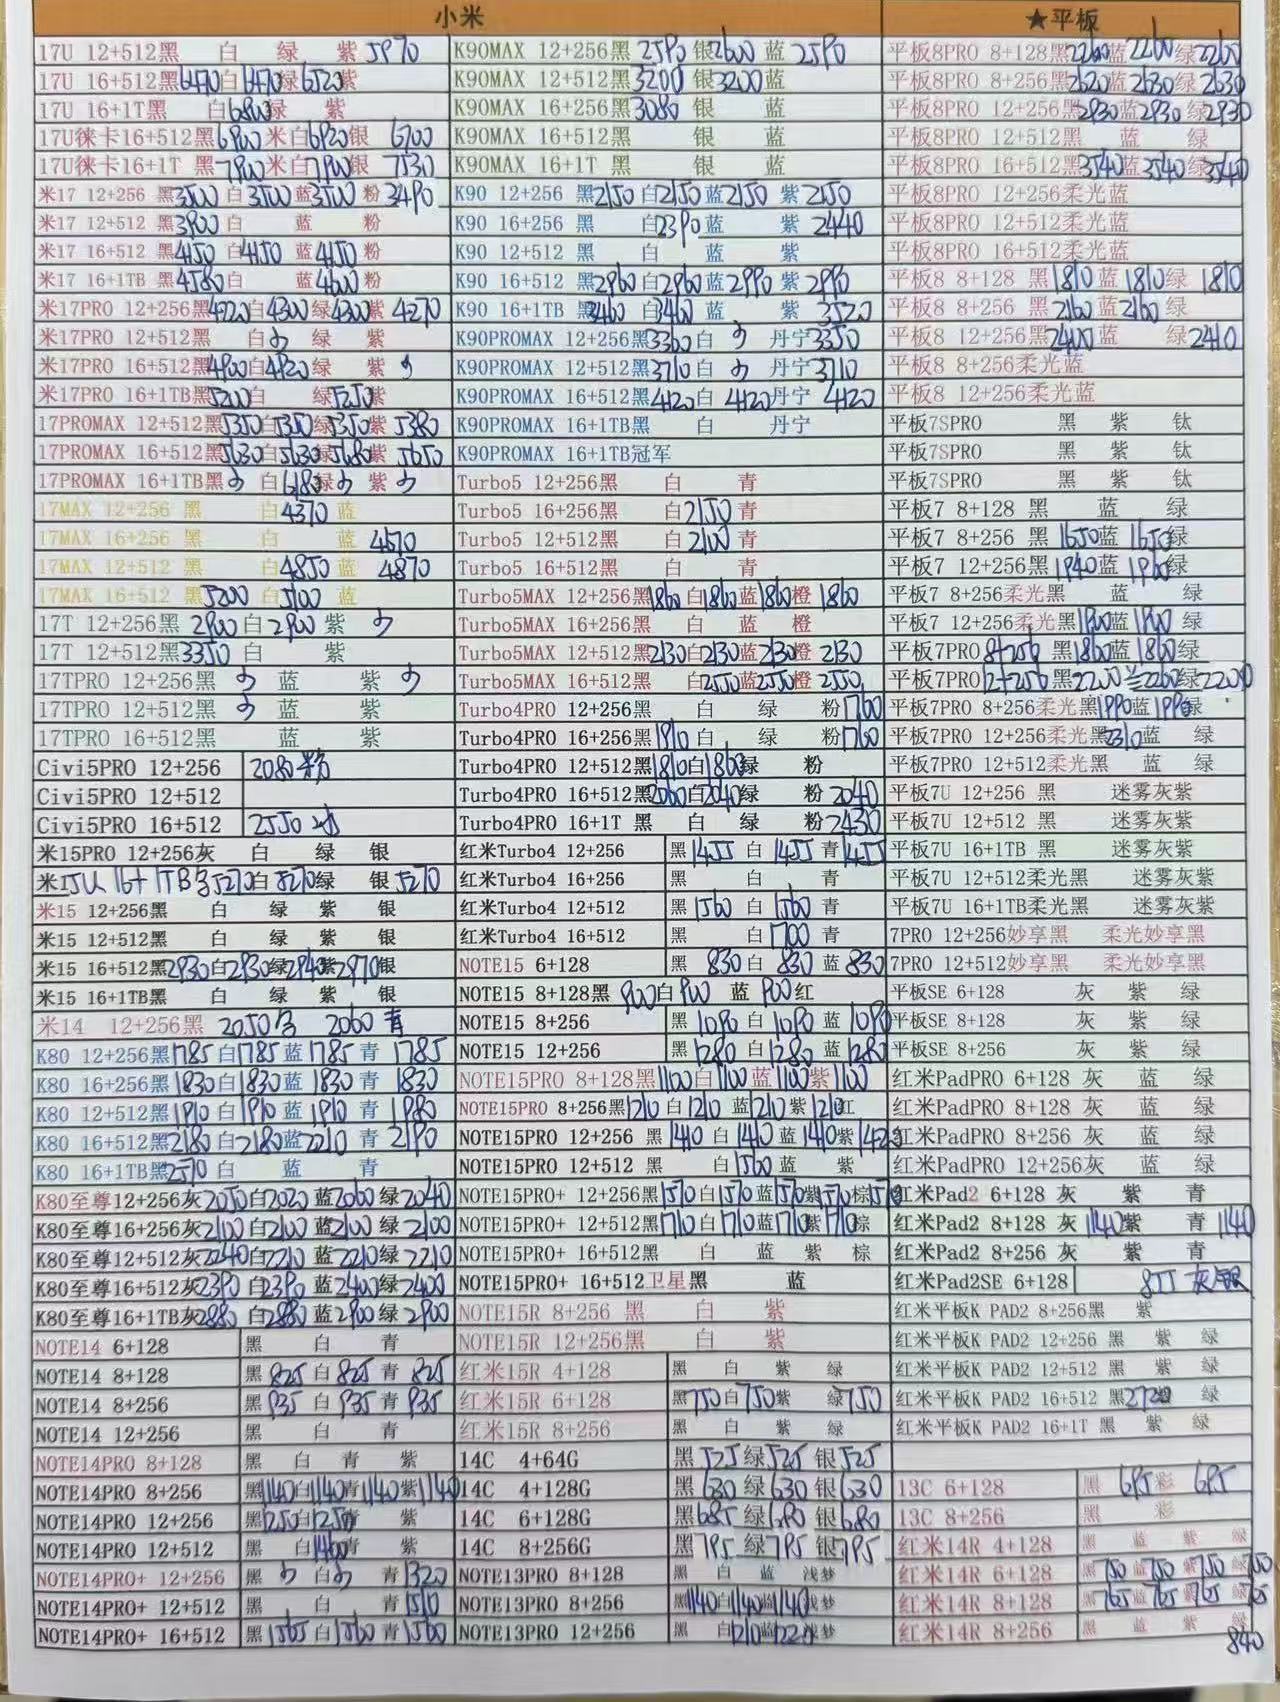 小米
17U 12+512黑 白 绿 紫 5970
17U 16+512黑6470白6470绿6520紫
17U 16+1T黑 白6800绿 紫
17U徕卡16+512黑6900米白6920银 6700
17U徕卡16+1T 黑7900米白7900银 7530
米17 12+256 黑3500白3500蓝3500粉3490
米17 12+512 黑3900白 蓝 粉
米17 16+512 黑4150白4150蓝4150粉
米17 16+1TB黑4580白 蓝4600粉
米17PRO 12+256黑 白4300绿4300紫4270
米17PRO 12+512黑 白 绿 紫
米17PRO 16+512黑4900白4920绿 紫
米17PRO 16+1TB黑5200白 绿5250紫
17PROMAX 12+512黑5350白5350绿5350紫5380
17PROMAX 16+512黑5630白5630绿5680紫5650
17PROMAX 16+1TB黑 白6180绿 紫
17MAX 12+256 黑 白4370蓝
17MAX 16+256 黑 白 蓝 4670
17MAX 12+512 黑 白4850蓝 4870
17MAX 16+512 黑5200白5100蓝
17T 12+256黑 2900白2900紫
17T 12+512黑3350白 紫
17TPRO 12+256黑 蓝 紫
17TPRO 12+512黑 蓝 紫
17TPRO 16+512黑 蓝 紫
Civi5PRO 12+256 2080粉
Civi5PRO 12+512
Civi5PRO 16+512 2550
米15PRO 12+256灰 白 绿 银
米15U 16+1TB 5270白5270绿 银5270
米15 12+256黑 白 绿 紫 银
米15 12+512黑 白 绿 紫 银
米15 16+512黑2930白2930绿2940紫2970银
米15 16+1TB黑 白 绿 紫 银
米14 12+256黑 2050 2060青
K80 12+256黑1785白1785蓝1785青1785
K80 16+256黑1830白1830蓝1830青1830
K80 12+512黑1910白1910蓝1910青1980
K80 16+512黑2180白2180蓝2210青2190
K80 16+1TB黑2570白 蓝 青
K80至尊12+256灰2050白2020蓝2060绿2040
K80至尊16+256灰2100白2100蓝2100绿2100
K80至尊12+512灰2240白2210蓝2210绿2210
K80至尊16+512灰2390白2390蓝2400绿2400
K80至尊16+1TB灰2880白2880蓝2900绿2900
NOTE14 6+128 黑 白 青
NOTE14 8+128 黑825白825青825
NOTE14 8+256 黑935白935青935
NOTE14 12+256 黑 白 青
NOTE14PRO 8+128 黑 白 青 紫
NOTE14PRO 8+256 黑1140白1140青1140紫1140
NOTE14PRO 12+256 黑1250白1250青 紫
NOTE14PRO 12+512 黑 白1460青 紫
NOTE14PRO+ 12+256 黑 白 青1320
NOTE14PRO+ 12+512 黑 白 青1510
NOTE14PRO+ 16+512 黑1565白1560青1560
K90MAX 12+256黑2590银2600蓝2590
K90MAX 12+512黑3200银3200蓝
K90MAX 16+256黑3080银 蓝
K90MAX 16+512黑 银 蓝
K90MAX 16+1T 黑 银 蓝
K90 12+256 黑2150白2150蓝2150紫2150
K90 16+256 黑 白2390蓝 紫2440
K90 12+512 黑 白 蓝 紫
K90 16+512 黑2960白2960蓝2990紫2990
K90 16+1TB 黑3460白3460蓝 紫3520
K90PROMAX 12+256黑3360白 丹宁3350
K90PROMAX 12+512黑3710白 丹宁3710
K90PROMAX 16+512黑4120白4120丹宁4120
K90PROMAX 16+1TB黑 白 丹宁
K90PROMAX 16+1TB冠军
Turbo5 12+256黑 白 青
Turbo5 16+256黑 白2150青
Turbo5 12+512黑 白2100青
Turbo5 16+512黑 白 青
Turbo5MAX 12+256黑1860白1860蓝1860橙1860
Turbo5MAX 16+256黑 白 蓝 橙
Turbo5MAX 12+512黑2130白2130蓝2130橙2130
Turbo5MAX 16+512黑 白2550蓝2550橙2550
Turbo4PRO 12+256黑 白 绿 粉1760
Turbo4PRO 16+256黑1910白 绿 粉1760
Turbo4PRO 12+512黑1810白1860绿 粉
Turbo4PRO 16+512黑2060白2040绿 粉2040
Turbo4PRO 16+1T 黑 白 绿 粉2430
红米Turbo4 12+256 黑1455白1455青1455
红米Turbo4 16+256 黑 白 青
红米Turbo4 12+512 黑1560白1560青
红米Turbo4 16+512 黑 白1700青
NOTE15 6+128 黑830白830蓝830
NOTE15 8+128黑900白900蓝900红
NOTE15 8+256 黑1090白1090蓝1090
NOTE15 12+256 黑1280白1280蓝1280
NOTE15PRO 8+128黑1100白1100蓝1100紫1100
NOTE15PRO 8+256黑1210白1210蓝1210紫1210红
NOTE15PRO 12+256 黑1410白1410蓝1410紫1425
NOTE15PRO 12+512 黑 白1560蓝 紫
NOTE15PRO+ 12+256黑1570白1570蓝1570紫1570棕1570
NOTE15PRO+ 12+512黑1710白1710蓝1710紫1710棕
NOTE15PRO+ 16+512黑 白 蓝 紫 棕
NOTE15PRO+ 16+512卫星黑 蓝
NOTE15R 8+256 黑 白 紫
NOTE15R 12+256黑 白 紫
红米15R 4+128 黑 白 紫 绿
红米15R 6+128 黑750白750紫 绿750
红米15R 8+256 黑 白 紫 绿
14C 4+64G 黑525绿525银525
14C 4+128G 黑630绿630银630
14C 6+128G 黑685绿680银680
14C 8+256G 黑795绿795银795
NOTE13PRO 8+128 黑 白 蓝 浅梦
NOTE13PRO 8+256 黑1140白1140蓝1140浅梦
NOTE13PRO 12+256 黑 白1210蓝1220浅梦
★平板
平板8PRO 8+128黑2260蓝2260绿2260
平板8PRO 8+256黑2620蓝2630绿2630
平板8PRO 12+256黑2930蓝2930绿2930
平板8PRO 12+512黑 蓝 绿
平板8PRO 16+512黑3540蓝3540绿3540
平板8PRO 12+256柔光蓝
平板8PRO 12+512柔光蓝
平板8PRO 16+512柔光蓝
平板8 8+128 黑1810蓝1810绿1810
平板8 8+256 黑2160蓝2160绿
平板8 12+256黑2400蓝 绿2410
平板8 8+256柔光蓝
平板8 12+256柔光蓝
平板7SPRO 黑 紫 钛
平板7SPRO 黑 紫 钛
平板7SPRO 黑 紫 钛
平板7 8+128 黑 蓝 绿
平板7 8+256 黑1650蓝1650绿
平板7 12+256黑1940蓝1960绿
平板7 8+256柔光黑 蓝 绿
平板7 12+256柔光黑1900蓝1900绿
平板7PRO 8+256 黑1860蓝1860绿
平板7PRO 12+256黑2200蓝2260绿2200
平板7PRO 8+256柔光黑1990蓝1990绿
平板7PRO 12+256柔光黑2310蓝 绿
平板7PRO 12+512柔光黑 蓝 绿
平板7U 12+256 黑 迷雾灰紫
平板7U 12+512 黑 迷雾灰紫
平板7U 16+1TB 黑 迷雾灰紫
平板7U 12+512柔光黑 迷雾灰紫
平板7U 16+1TB柔光黑 迷雾灰紫
7PRO 12+256妙享黑 柔光妙享黑
7PRO 12+512妙享黑 柔光妙享黑
平板SE 6+128 灰 紫 绿
平板SE 8+128 灰 紫 绿
平板SE 8+256 灰 紫 绿
红米PadPRO 6+128 灰 蓝 绿
红米PadPRO 8+128 灰 蓝 绿
红米PadPRO 8+256 灰 蓝 绿
红米PadPRO 12+256灰 蓝 绿
红米Pad2 6+128 灰 紫 青
红米Pad2 8+128 灰1140紫 青1140
红米Pad2 8+256 灰 紫 青
红米Pad2SE 6+128 855 灰银
红米平板K PAD2 8+256黑 紫
红米平板K PAD2 12+256 黑 紫 绿
红米平板K PAD2 12+512 黑 紫 绿
红米平板K PAD2 16+512 黑2720 绿
红米平板K PAD2 16+1T 黑 紫 绿
13C 6+128 黑695彩695
13C 8+256 黑 彩
红米14R 4+128 黑 蓝 紫 绿
红米14R 6+128 黑750蓝750紫750绿750
红米14R 8+128 黑765蓝765紫765绿765
红米14R 8+256 黑 蓝 紫 绿
840